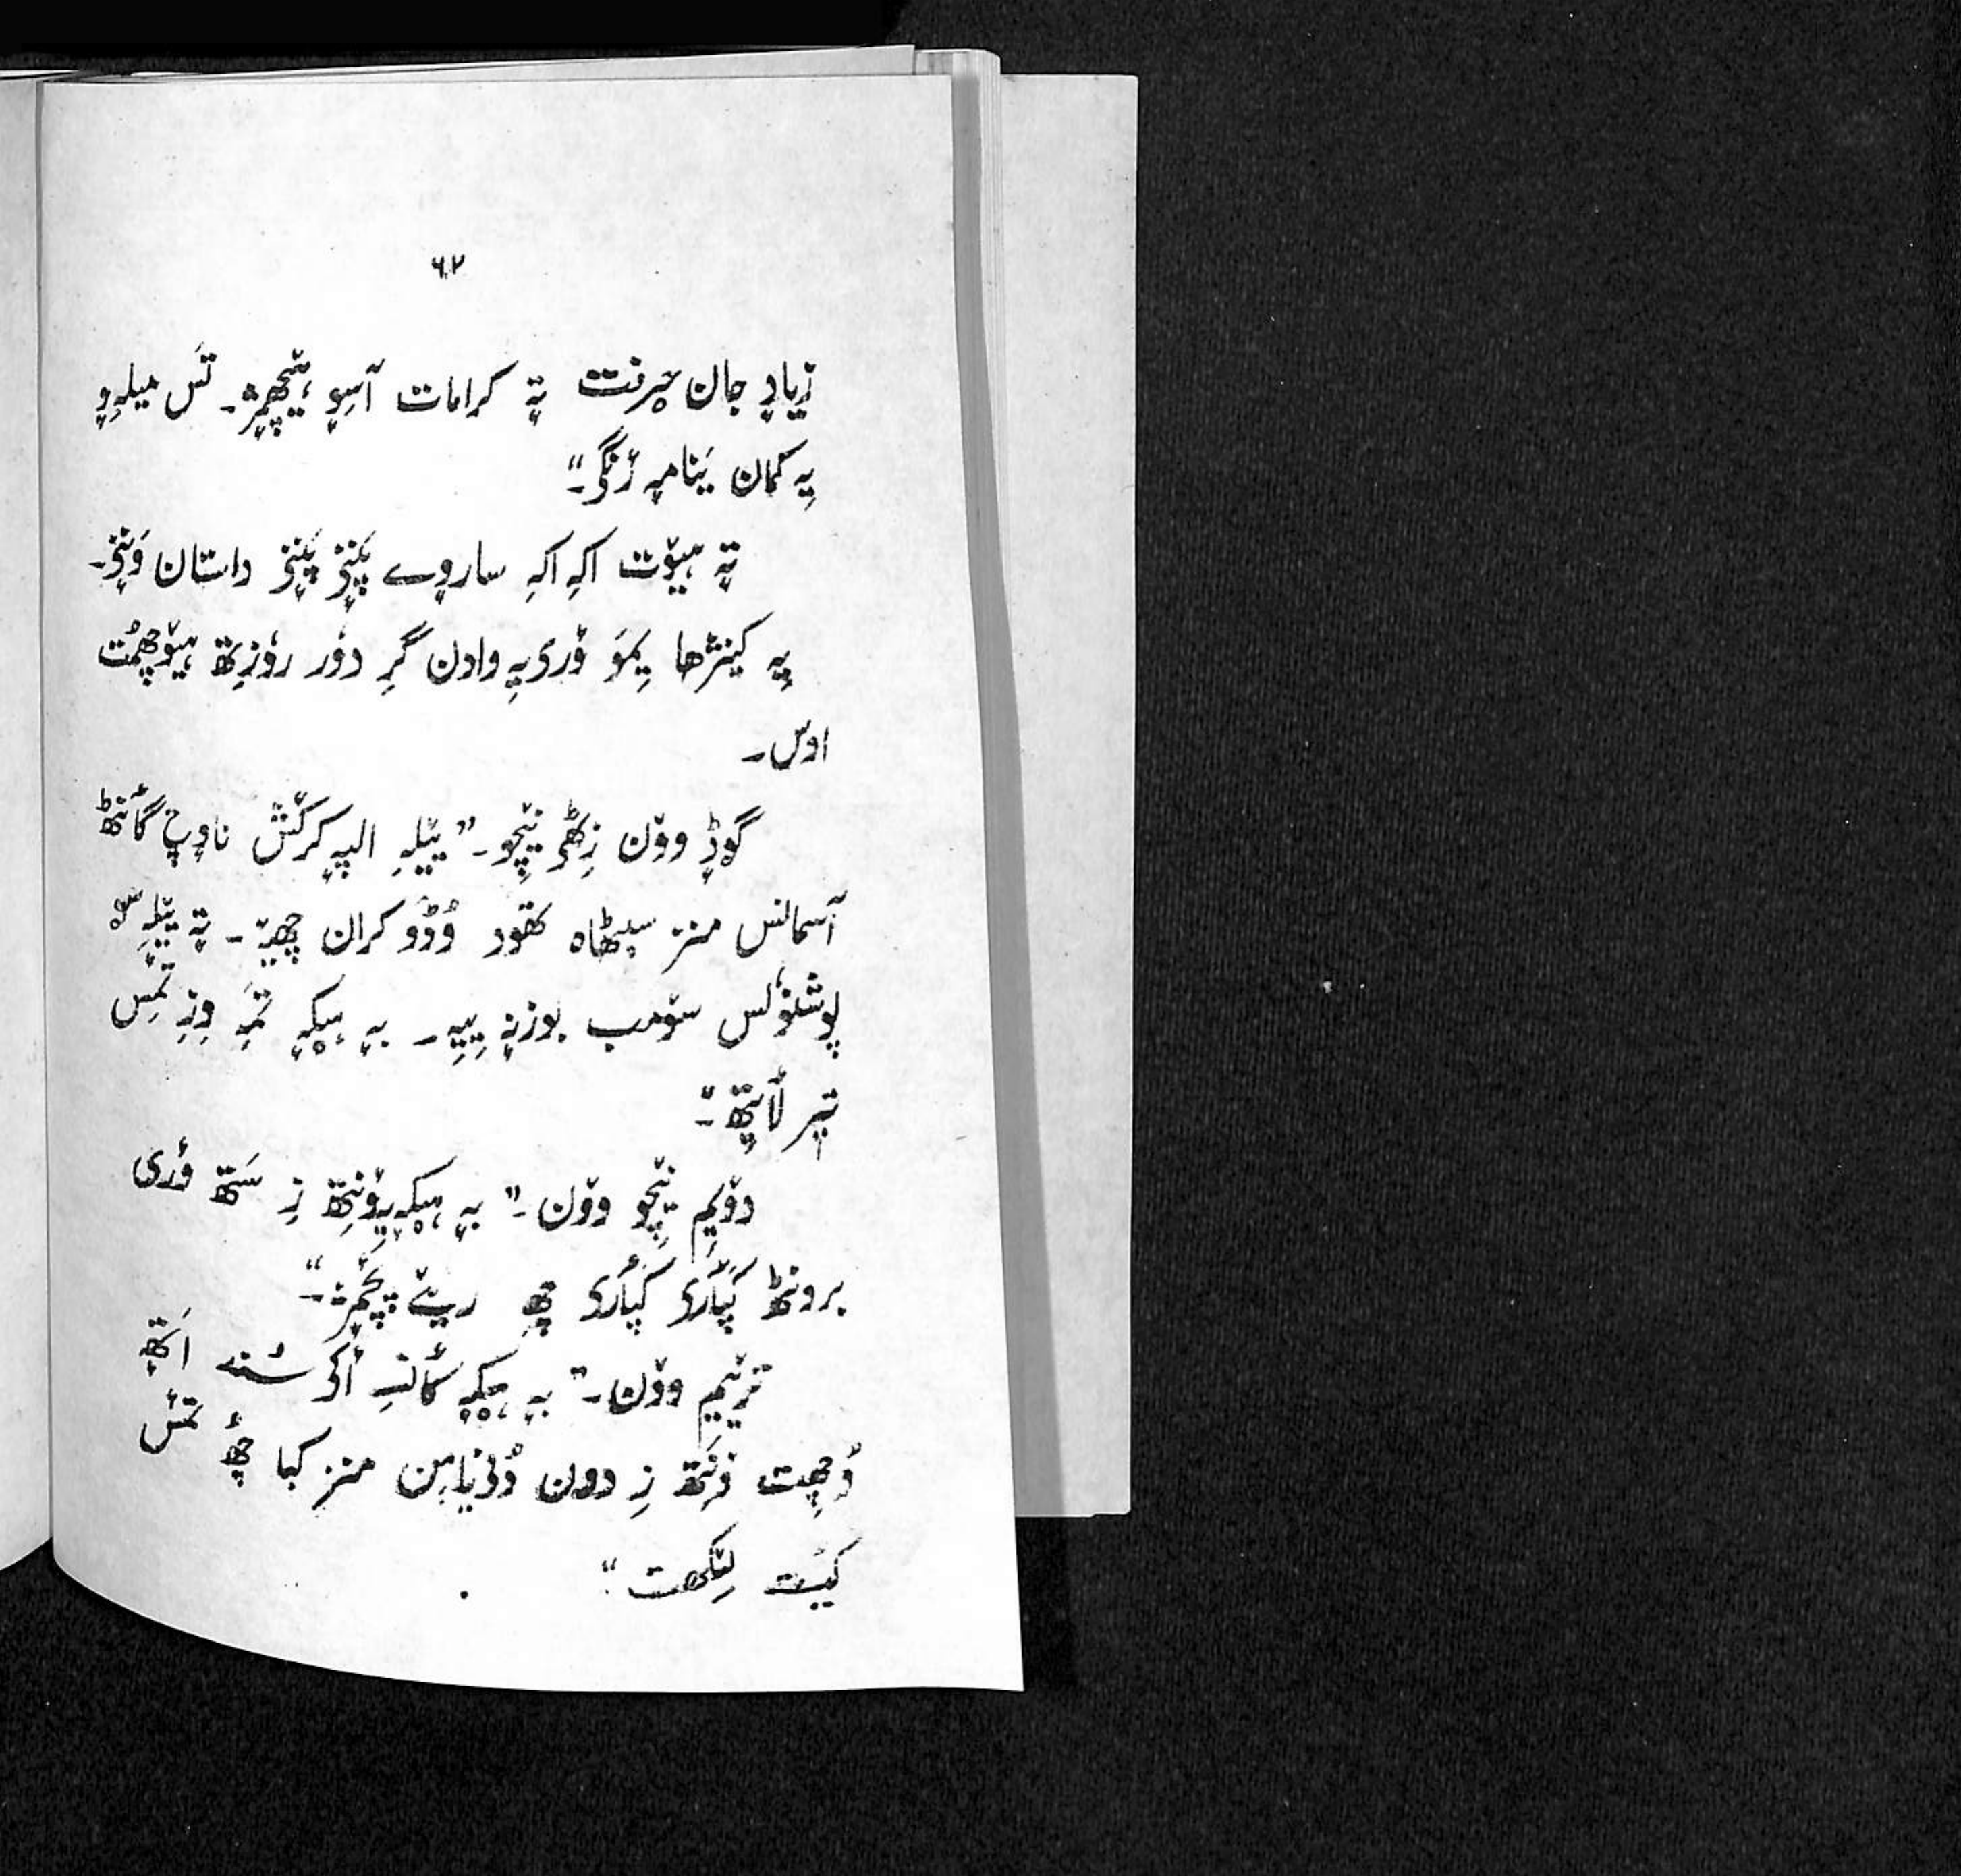 ٦٢
زیادٕ جان حرٕفت تہٕ کرامات آسہِ ہیٚچھمٕژ۔ تَس میلہِ وٕ
یہِ کمان یَنامہٕ رٔنگۍ۔"
تہٕ ہیوٚت اکہِ اکہِ سارٕوے پَننۍ پَننۍ داستان وَننۍ۔
یہِ کینژھا یِمَو وٚری یہِ وادن گَرِ دوٗر روٗزِتھ ہیوٚچھمُت
اوس۔
گۄڈٕ ووٚن زِٹھۍ نیٚچوۍ۔ "ییٚلہِ الپہٕ کرٛش نادٕچ گأنٹھ
آسمانس منز سیٹھاہ تھوٚد وُڈَو کران چھےٚ۔ تہٕ ییٚلہِ سۄ
پوشنوٗلس سۄمب بوزنہٕ یِیہِ۔ بہٕ ہیکہٕ تَمہِ وِزِ تَمِس
تیٖر لٲیِتھ۔"
دۆیِم نیٚچو ووٚن۔ "بہٕ ہیکہٕ یہِ وٚنِتھ زِ سَتھ وٚری
برونٹھ کَپٲرۍ کَپٲرۍ چھِ ریٚے پٔچمٕژ۔"
ترٛیٚیِم ووٚن۔ "بہٕ ہیکہٕ کٲنسہِ أکۍ سُند اَتھہٕ
وُچھِت وَنتھ زِ دون دُنیاہن منز کیا چھُ تَمۍس
کیُت لیٚکھت"